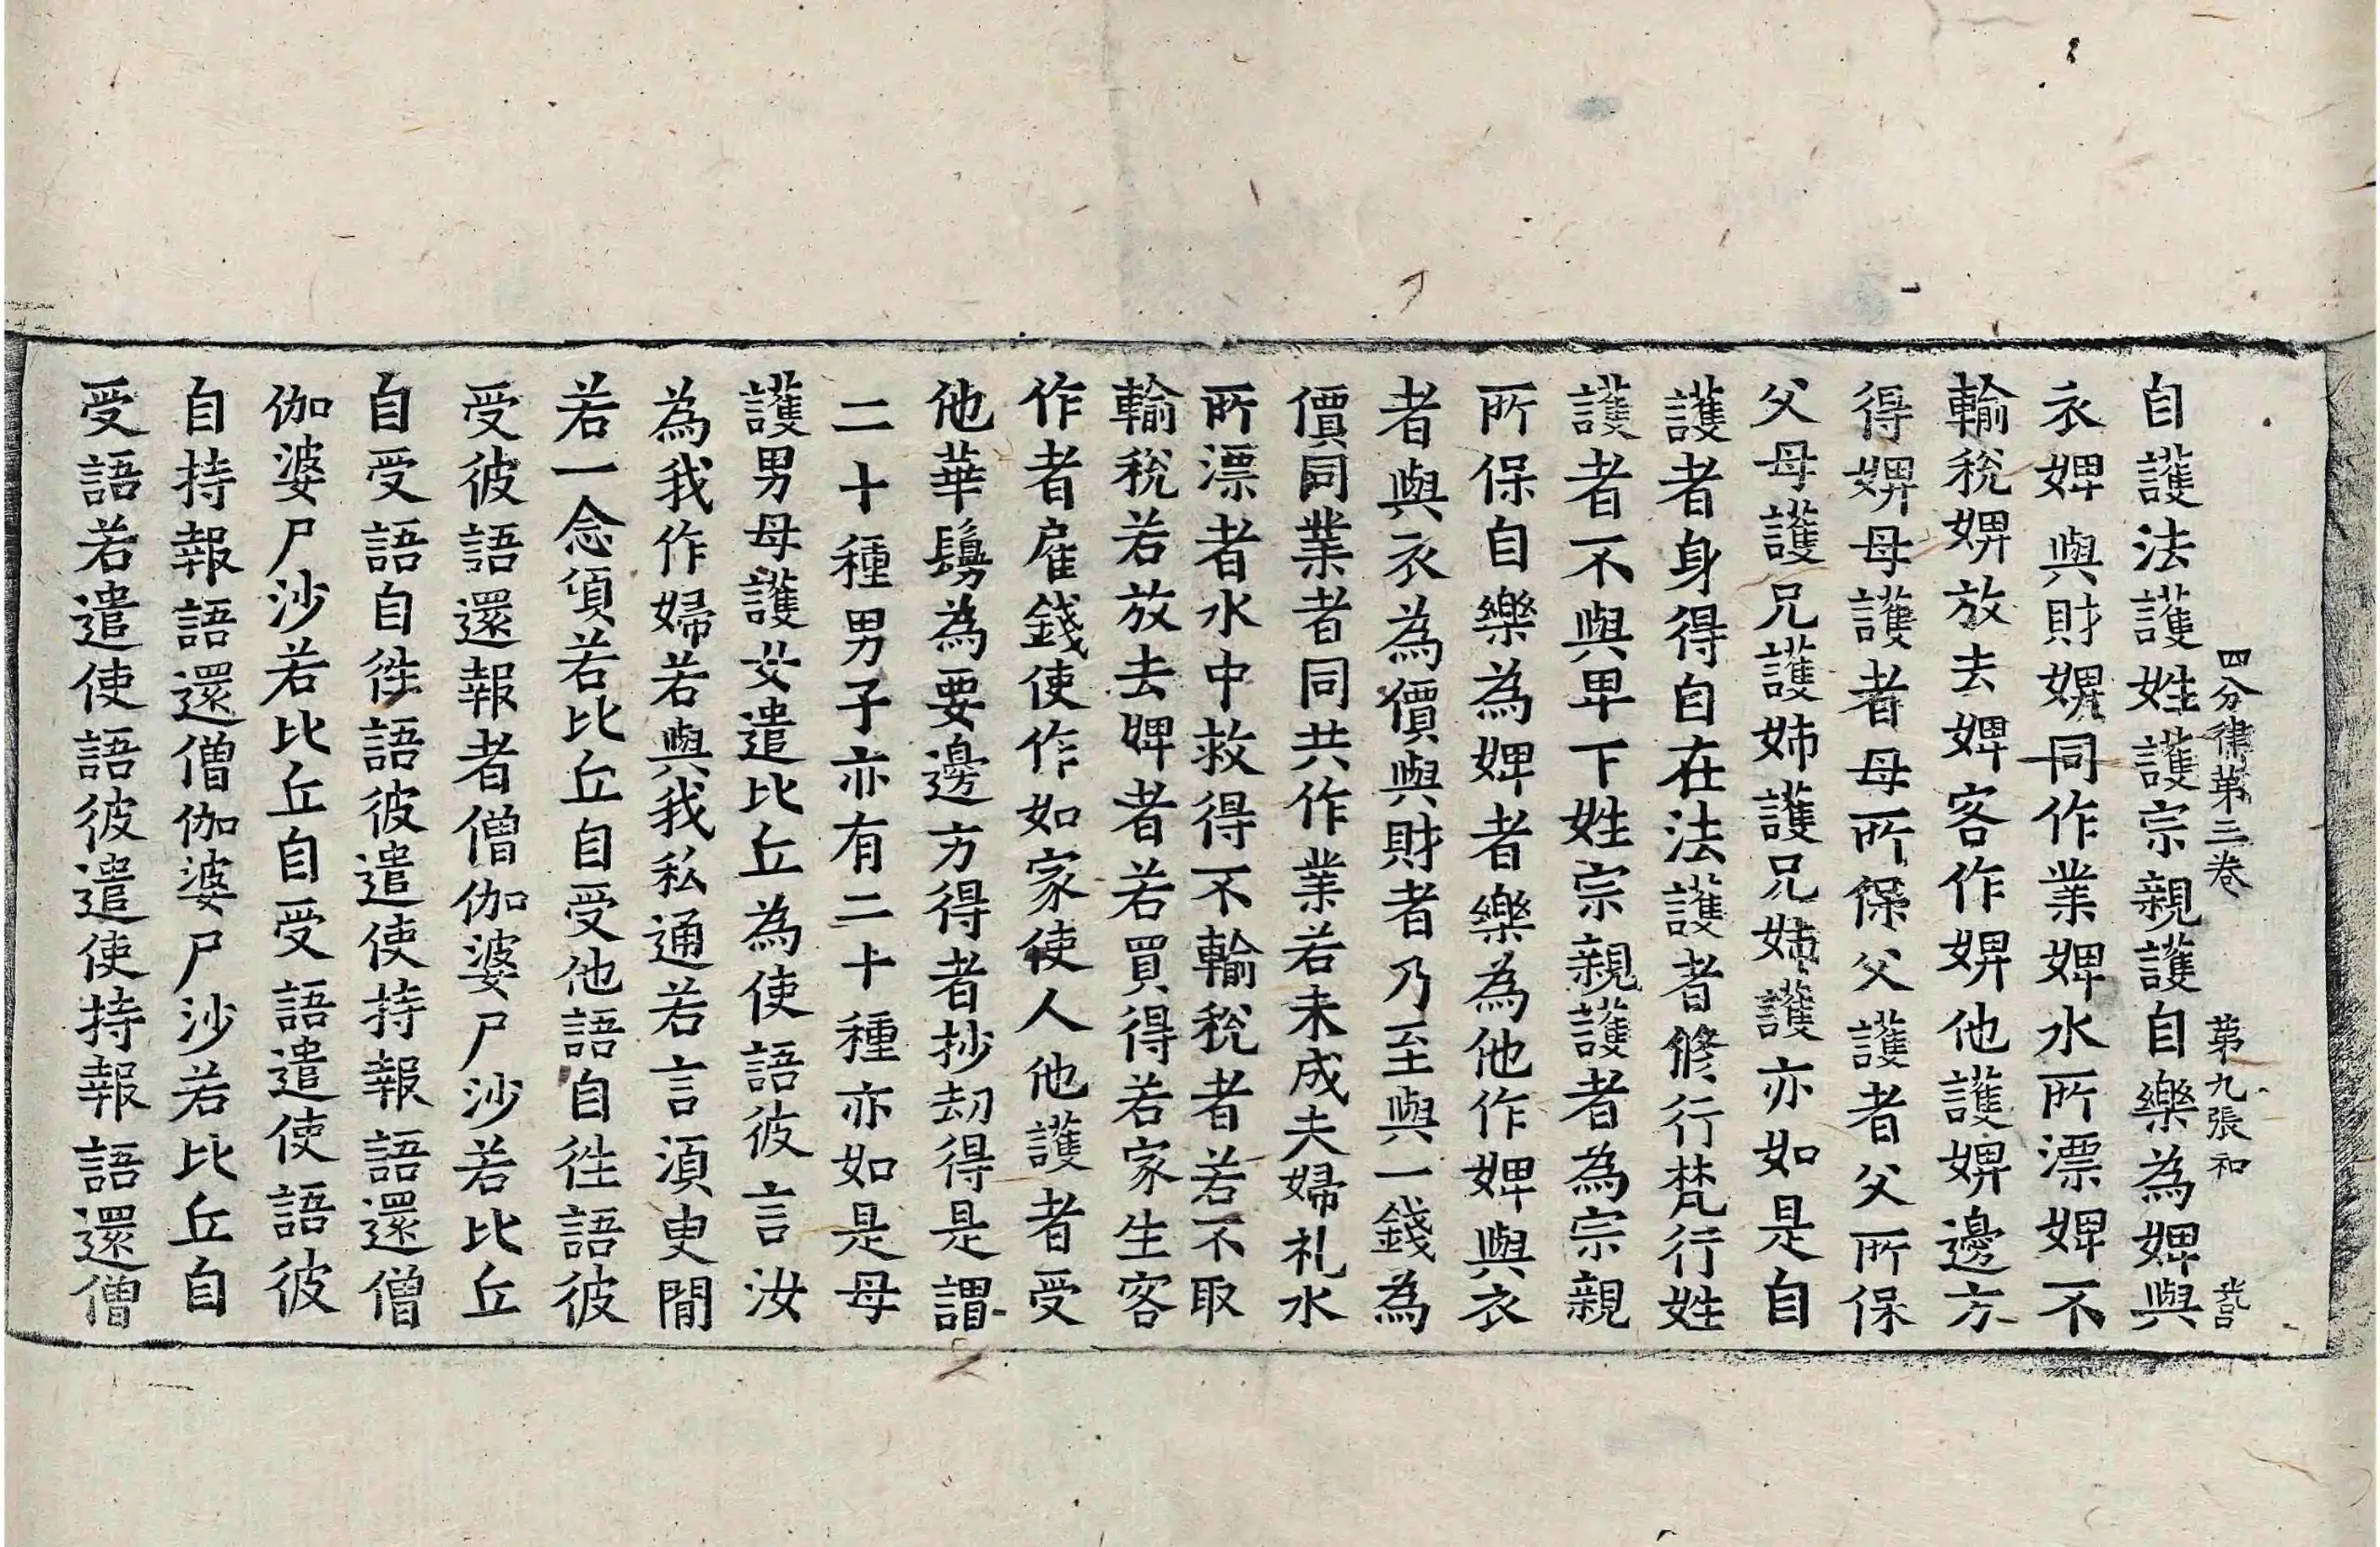 四分律第三卷　第九張　和
自護法護姓護宗親護自樂為婢與
衣婢與財婢同作業婢水所漂婢不
輸稅婢放去婢客作婢他護婢邊方
得婢母護者母所保父護者父所保
父母護兄護姉護兄姉護亦如是自
護者身得自在法護者修行梵行姓
護者不與卑下姓宗親護者為宗親
所保自樂為婢者樂為他作婢與衣
者與衣為價與財者乃至與一錢為
價同業者同共作業若未成夫婦礼水
所漂者水中救得不輸稅者若不取
輸稅若放去婢者若買得若家生客
作者雇錢使作如家使人他護者受
他華鬘為要邊方得者抄劫得是謂
二十種男子亦有二十種亦如是母
護男母護女遣比丘為使語彼言汝
為我作婦若與我私通若言須臾閒
若一念頃若比丘自受他語自往語彼
受彼語還報者僧伽婆尸沙若比丘
自受語自往語彼遣使持報語還僧
伽婆尸沙若比丘自受語遣使語彼
自持報語還僧伽婆尸沙若比丘自
受語若遣使語彼遣使持報語還僧